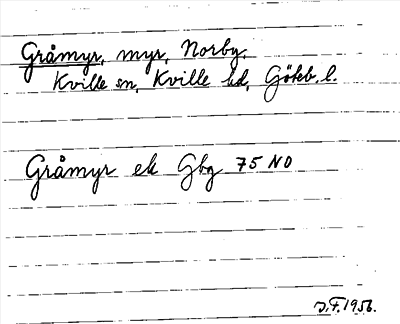 Gråmyr, myr, Norby,
Kville sn, Kville hd, Göteb. l.
Gråmyr ek Gbg 75 NO
J.F. 1956.